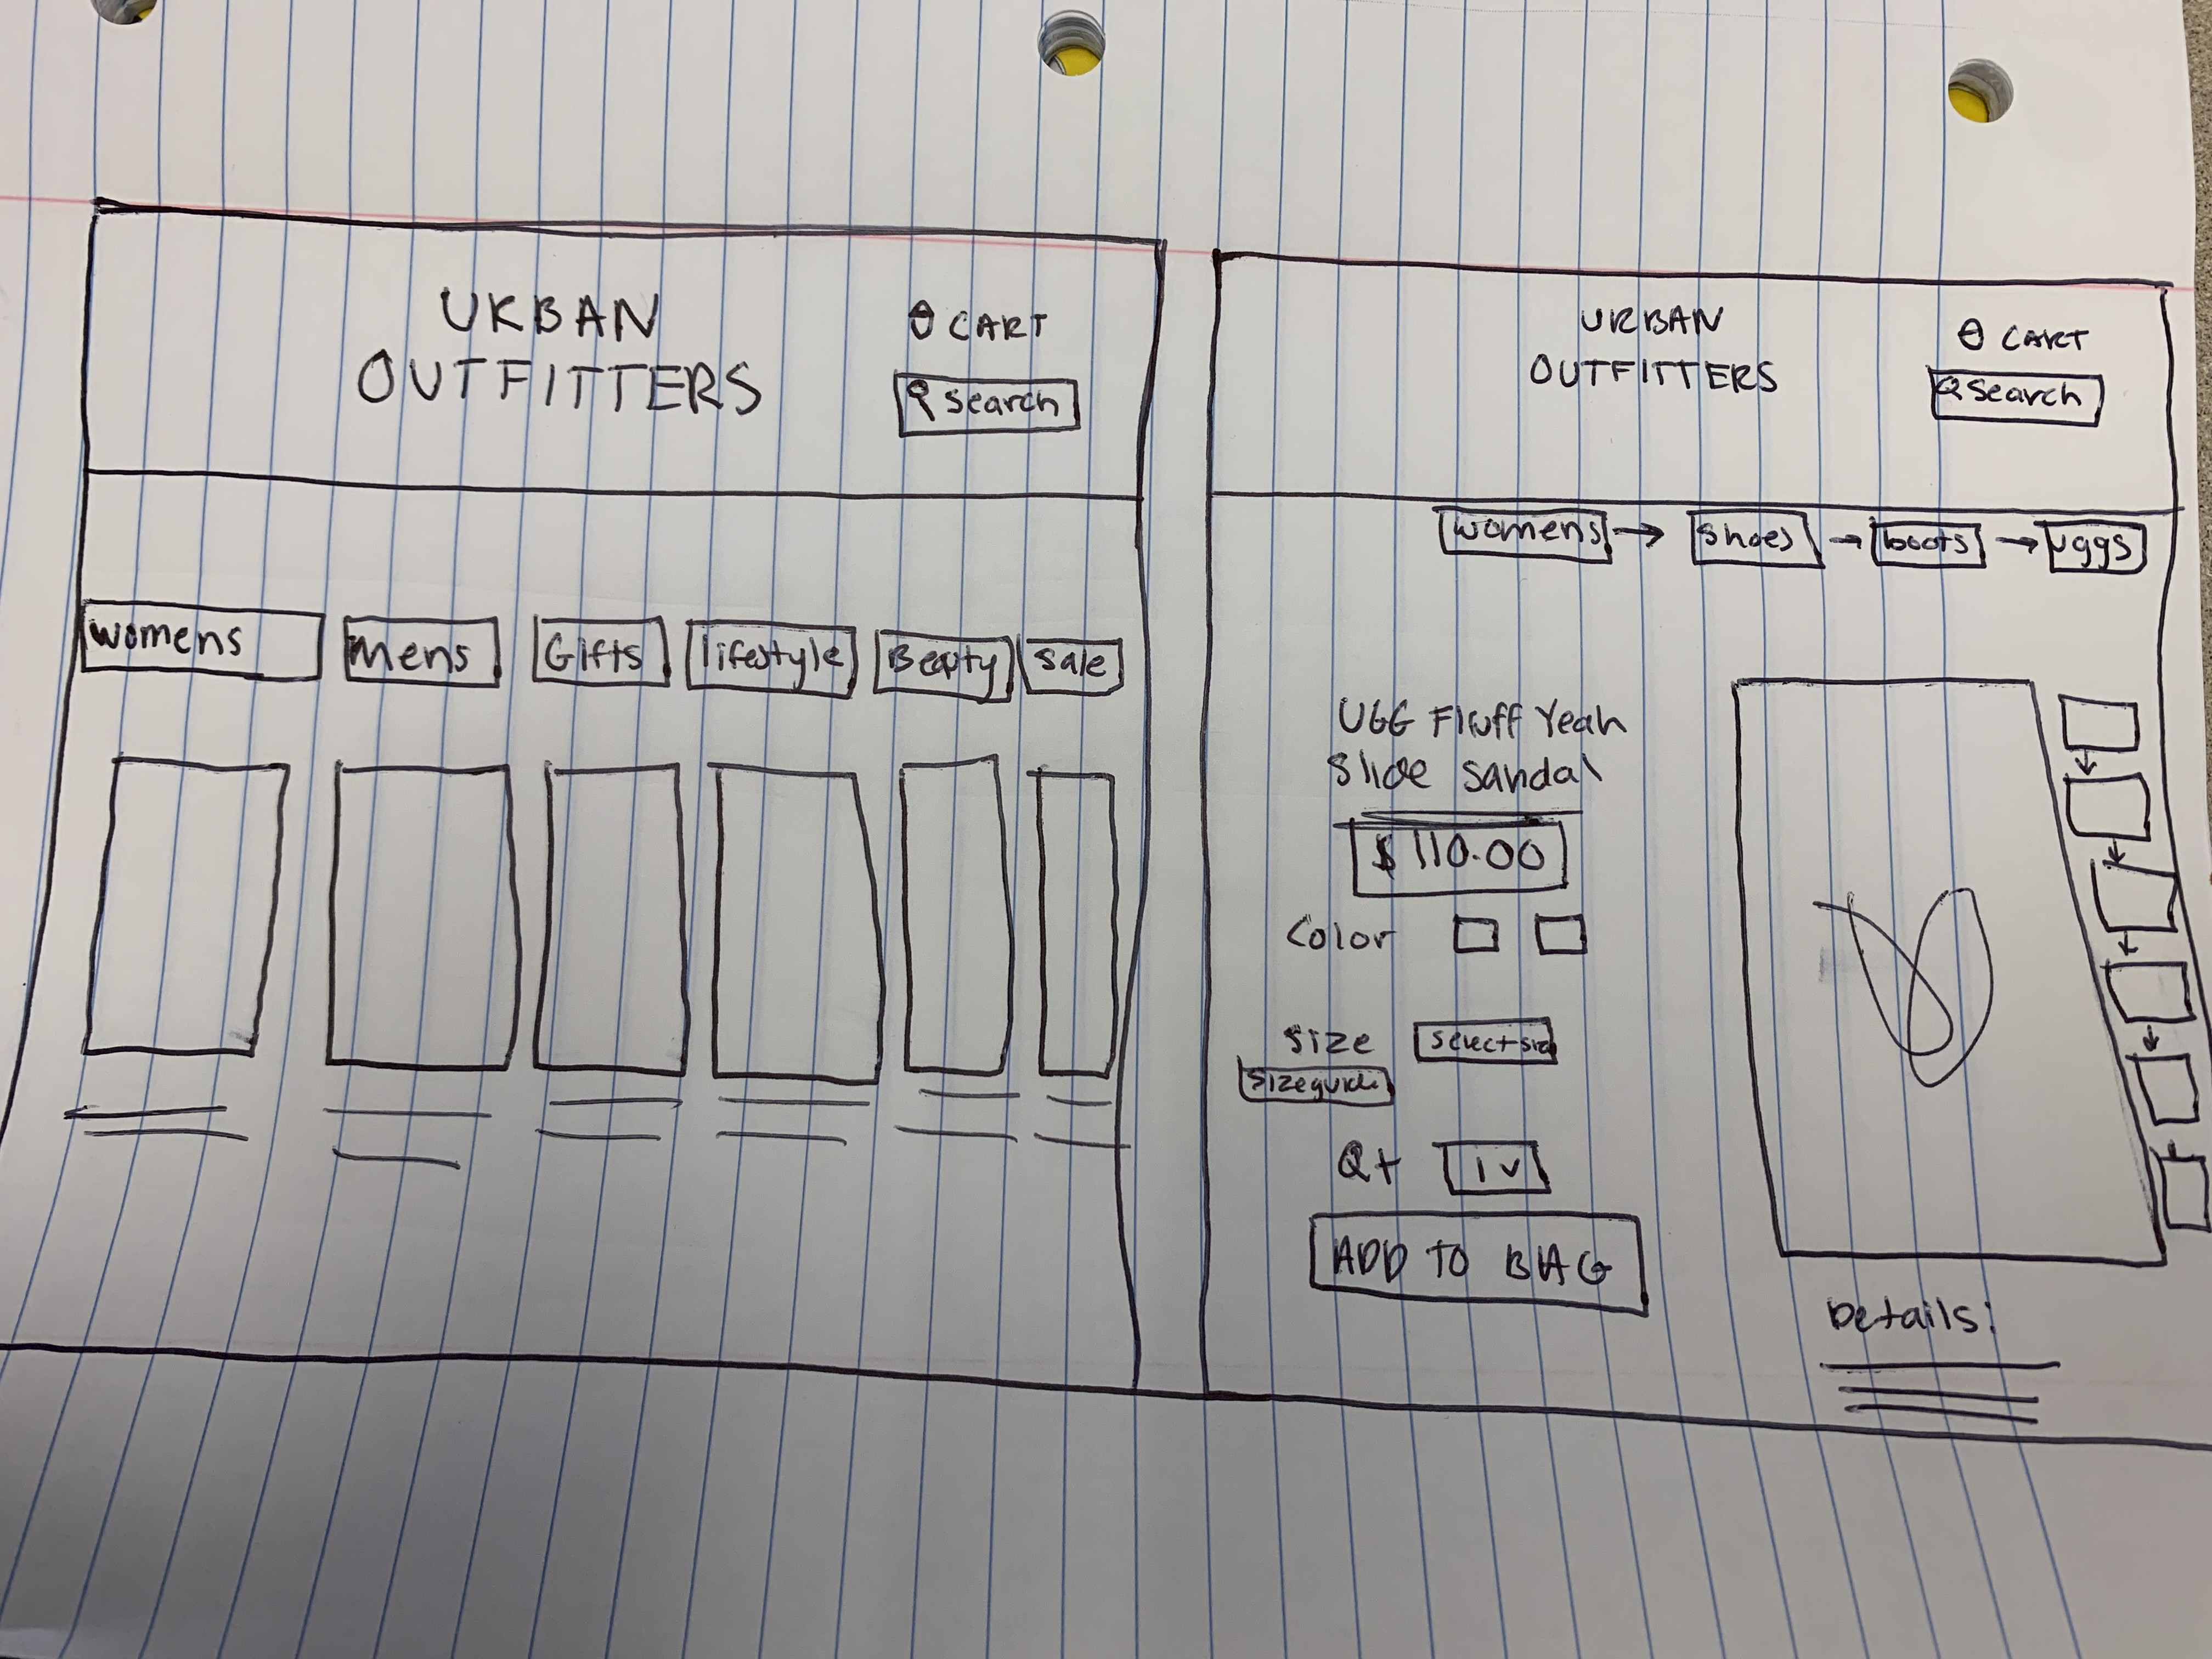 URBAN
OUTFITTERS
CART
Search
Womens
Mens
Gifts
lifestyle
Beauty
Sale
URBAN
OUTFITTERS
CART
Search
Womens → Shoes → boots → uggs
UGG Fluff Yeah
Slide Sandal
$110.00
Color
Size
Select size
Size guide
Qt 1
ADD TO BAG
Details: